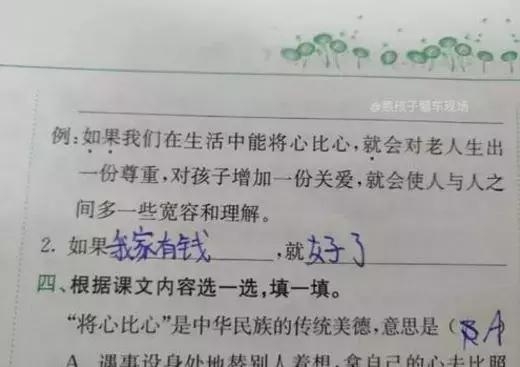 @熊孩子翻车现场
例:如果我们在生活中能将心比心,就会对老人生出
一份尊重,对孩子增加一份关爱,就会使人与人之
间多一些宽容和理解。
2. 如果我家有钱,就好了
四、根据课文内容选一选,填一填。
“将心比心”是中华民族的传统美德,意思是( A
A. 遇事设身处地替别人着想,拿自己的心去比照